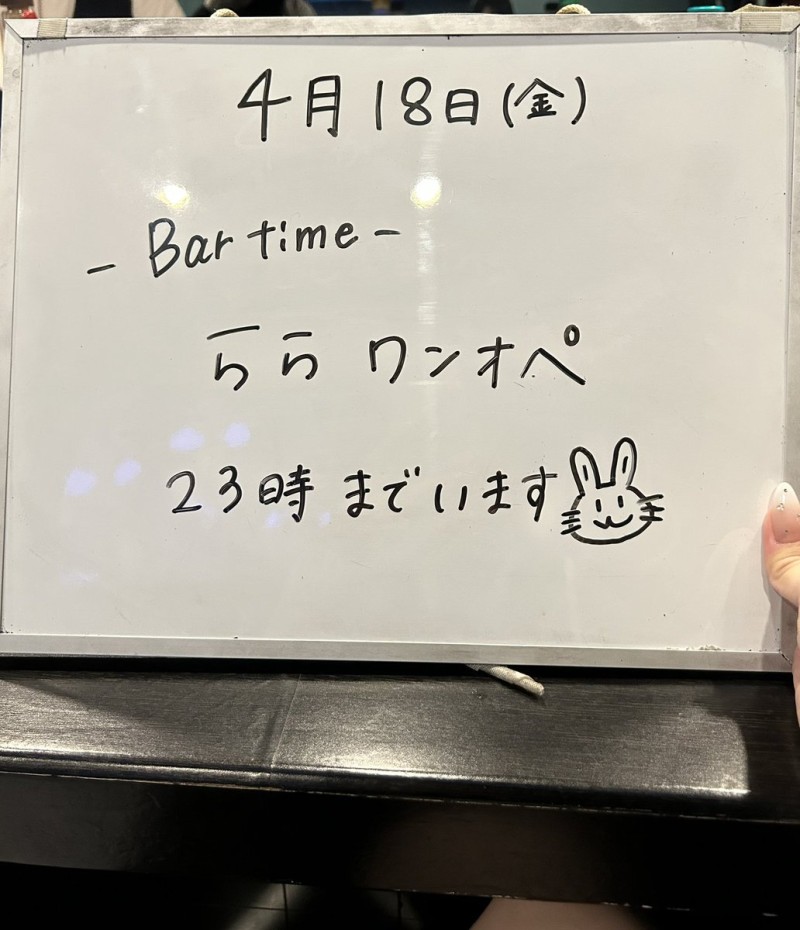 4月18日(金)
- Bar time -
らら ワンオペ
23時 までいます